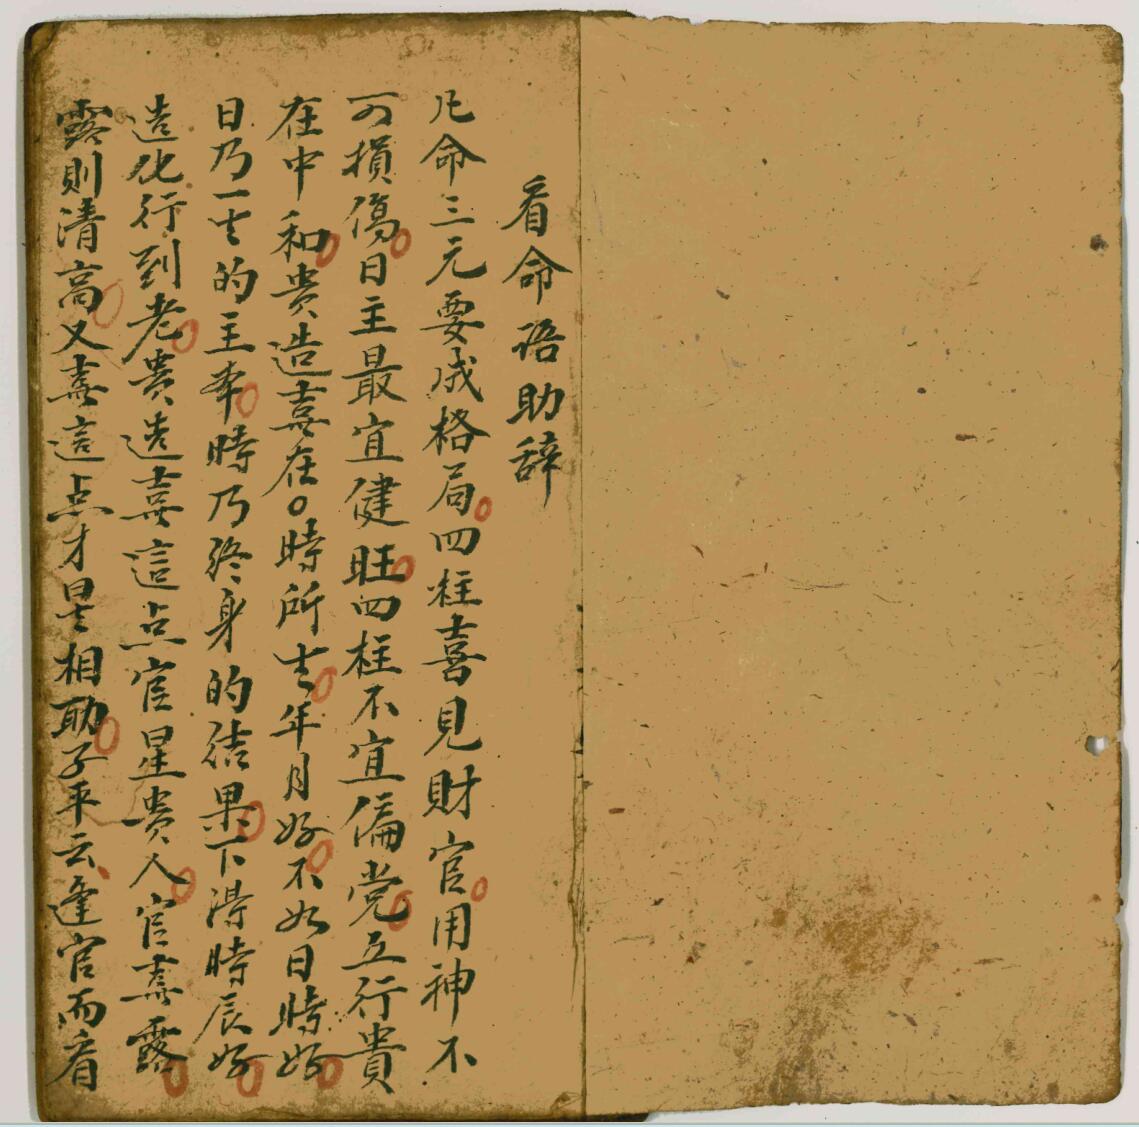 看命语助辞
凡命三元要成格局四柱喜見財官用神不
可損傷日主最宜健旺四柱不宜偏党五行貴
在中和贵造喜在○時所生年月好不如日時好
日乃一生的主宰時乃终身的结果下得時辰好
造化行到老贵造喜這点官星贵人官喜露
露則清高又喜這点才星相助子平云逢官而看